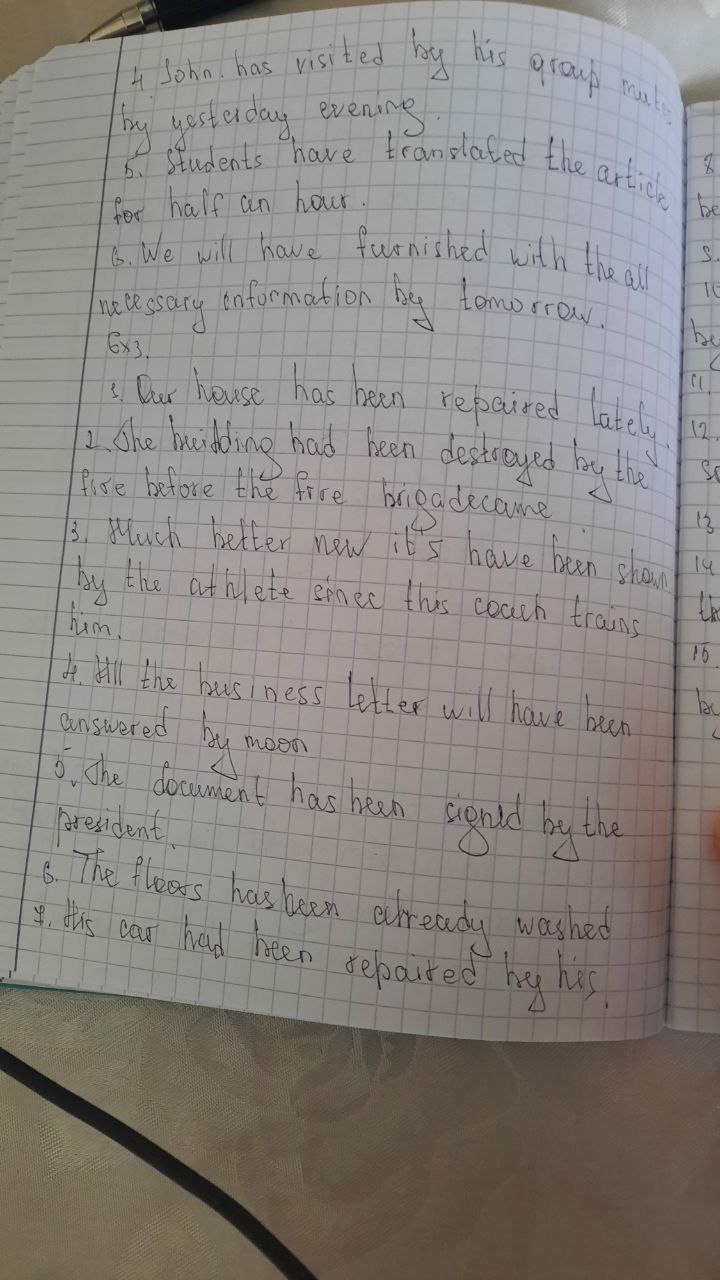 4. John has visited by his group mates
by yesterday evening.
5. Students have translated the article
for half an hour.
6. We will have furnished with the all
necessary information by tomorrow.
Ex3.
1. Our house has been repaired lately.
2. The building had been destroyed by the
fire before the fire brigadecame
3. Much better new it's have been shown
by the athlete since this coach trains
him.
4. All the business letter will have been
answered by moon
5. The document has been signed by the
president.
6. The floors has been already washed
7. His car had been repaired by his.
8
be
9.
10
be
11.
12.
13
14
th
15.
be